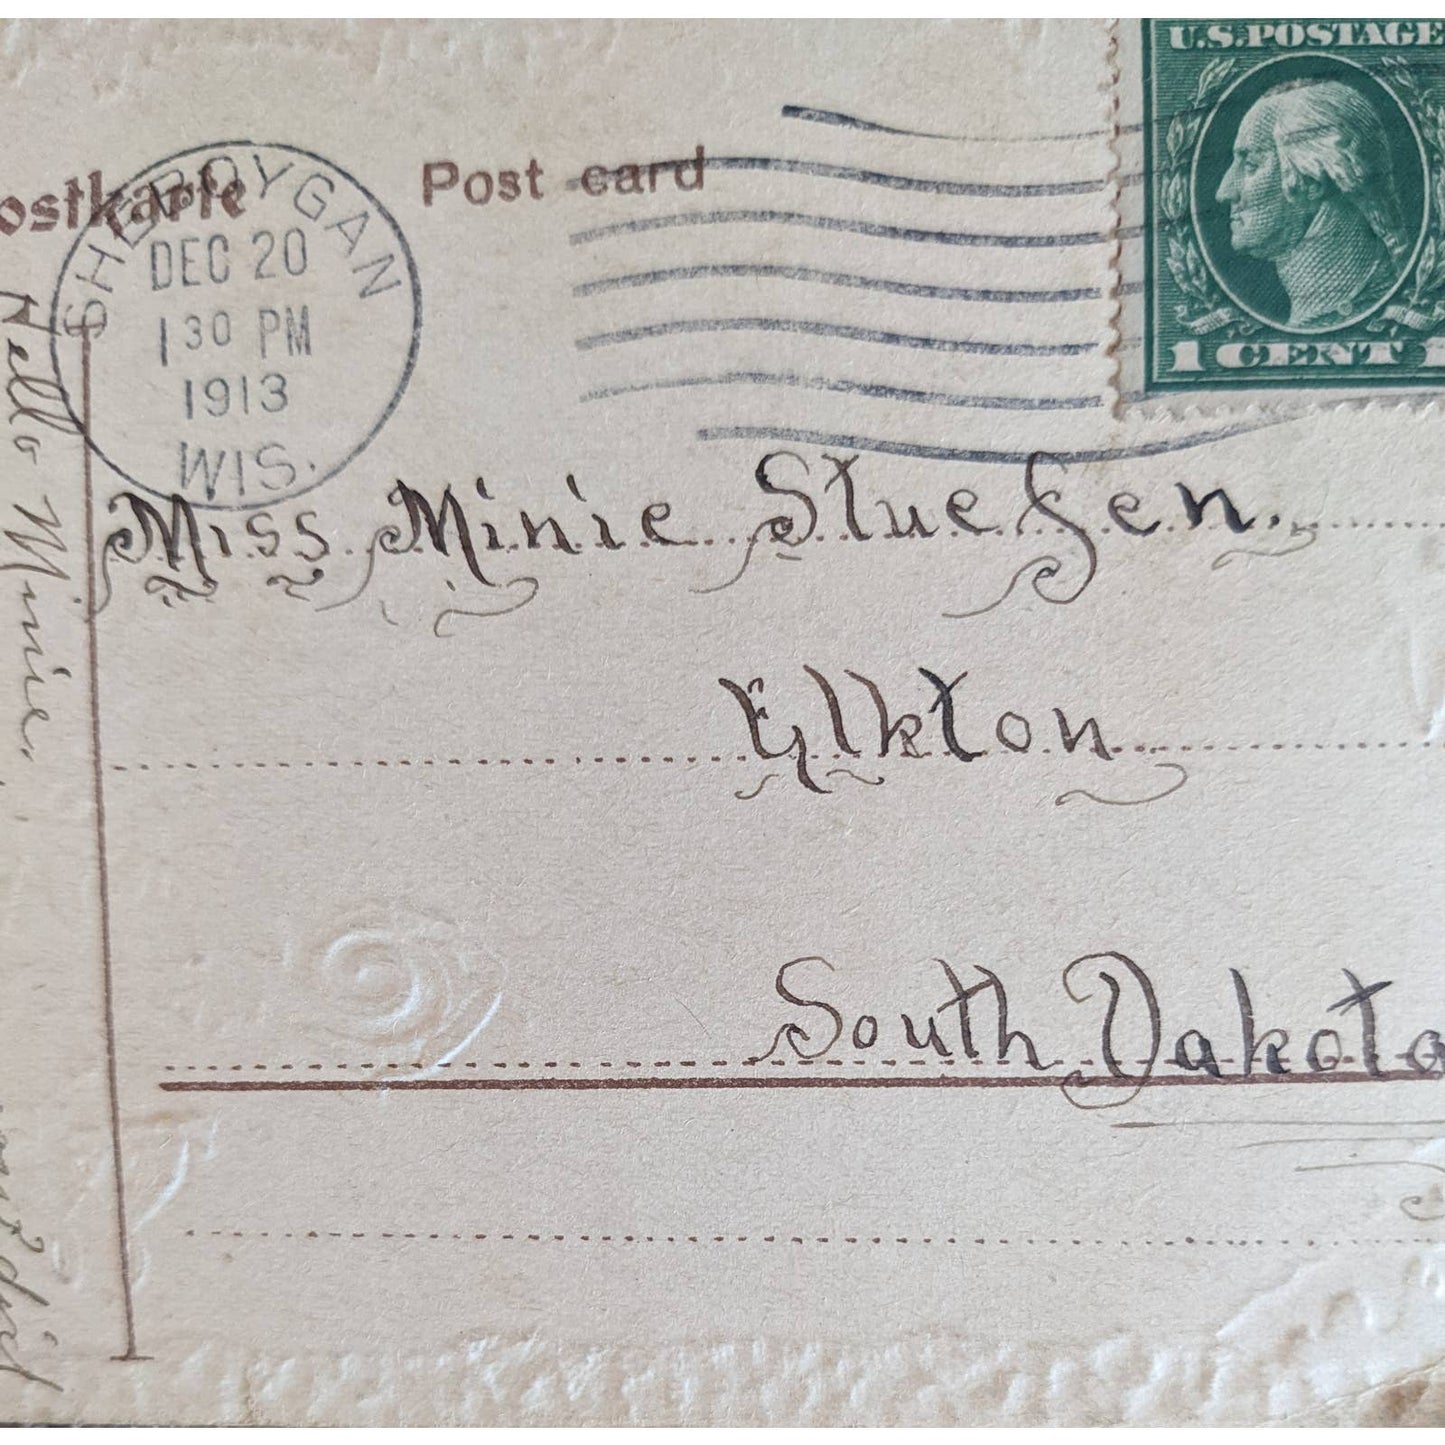 U.S.POSTAGE
1 CENT 1
Post card
SHEBOYGAN
DEC 20
1 30 PM
1913
WIS.
Miss Minie Stuefen.
Elkton
South Dakota
Hello Minie.
did